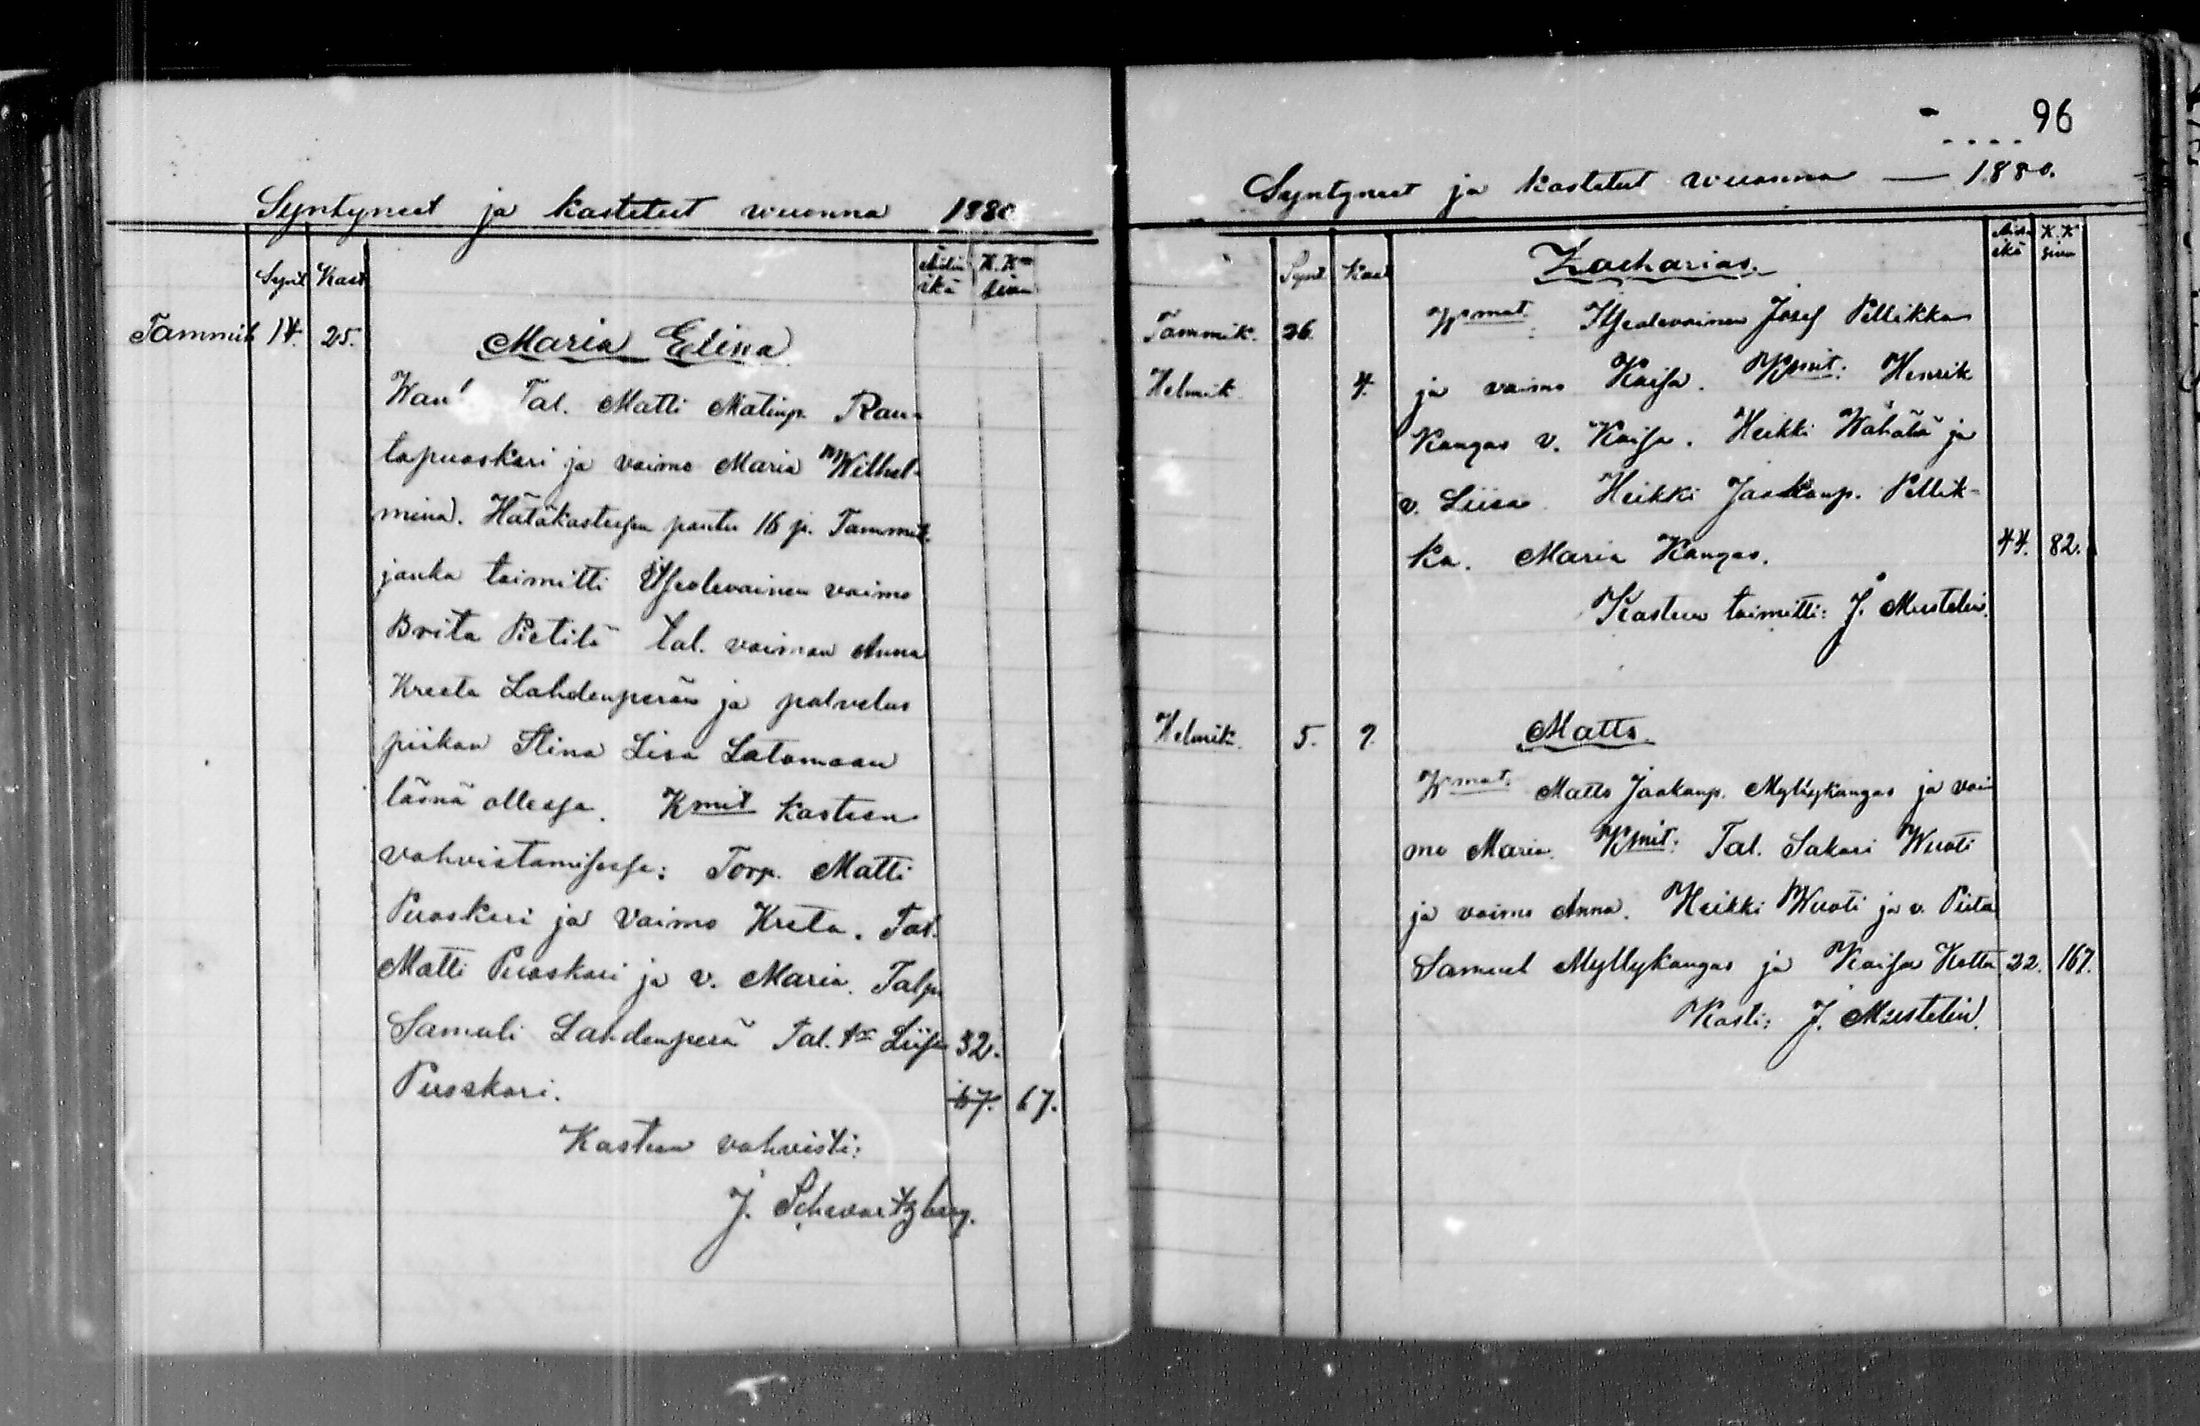 Syntyneet ja kastetut wuonna 1880
Synt. Kast. Äidin ikä K.K:n sivu
Tammik 14. 25. Maria Elina
Wan! Tal. Matti Matinp. Ran-
tapuoskari ja vaimo Maria Wilhel-
mina. Hätäkasteesen pantu 16 p. Tammik.
jonka toimitti Itsealevainen vaimo
Brita Pietilä tal. vaimon Anna
Kreeta Lahdenperän ja palvelus
piikan Stina Lisa Latomaan
läsnä ollessa. Kmit kasteen
vahvistamisessa: Torp. Matti
Puoskari ja vaimo Kreta. Tal.
Matti Puoskari ja v. Maria. Talp.
Samuli Lahdenperä Tal. tr Liisa 32.
Puoskari. 67. 67.
Kasteen vahvisti:
J. Schwartzberg.
96
Syntyneet ja kastetut wuonna — 1880.
Synt. Kast Äidin ikä K.K sivu
Zacharias.
Tammik. 26. Wmat: Itsealevainen Josef Pellikka
Helmik. 4. ja vaimo Kaisa. Kmit: Henrik
Kangas v. Kaisa. Heikki Wähälä ja
v. Liisa. Heikki Jaakonp. Pellik-
ka. Maria Kangas. 44. 82.
Kasteen toimitti: J. Mustelin.
Helmik. 5. 9. Matts.
Wmat: Matts Jaakonp. Myllykangas ja vai
mo Maria. Kmit: Tal. Sakari Wuoti
ja vaimo Anna. Heikki Wuoti ja v. Pieta
Samuel Myllykangas ja Kaisa Kotta 22. 167.
Kasti: J. Mustelin.